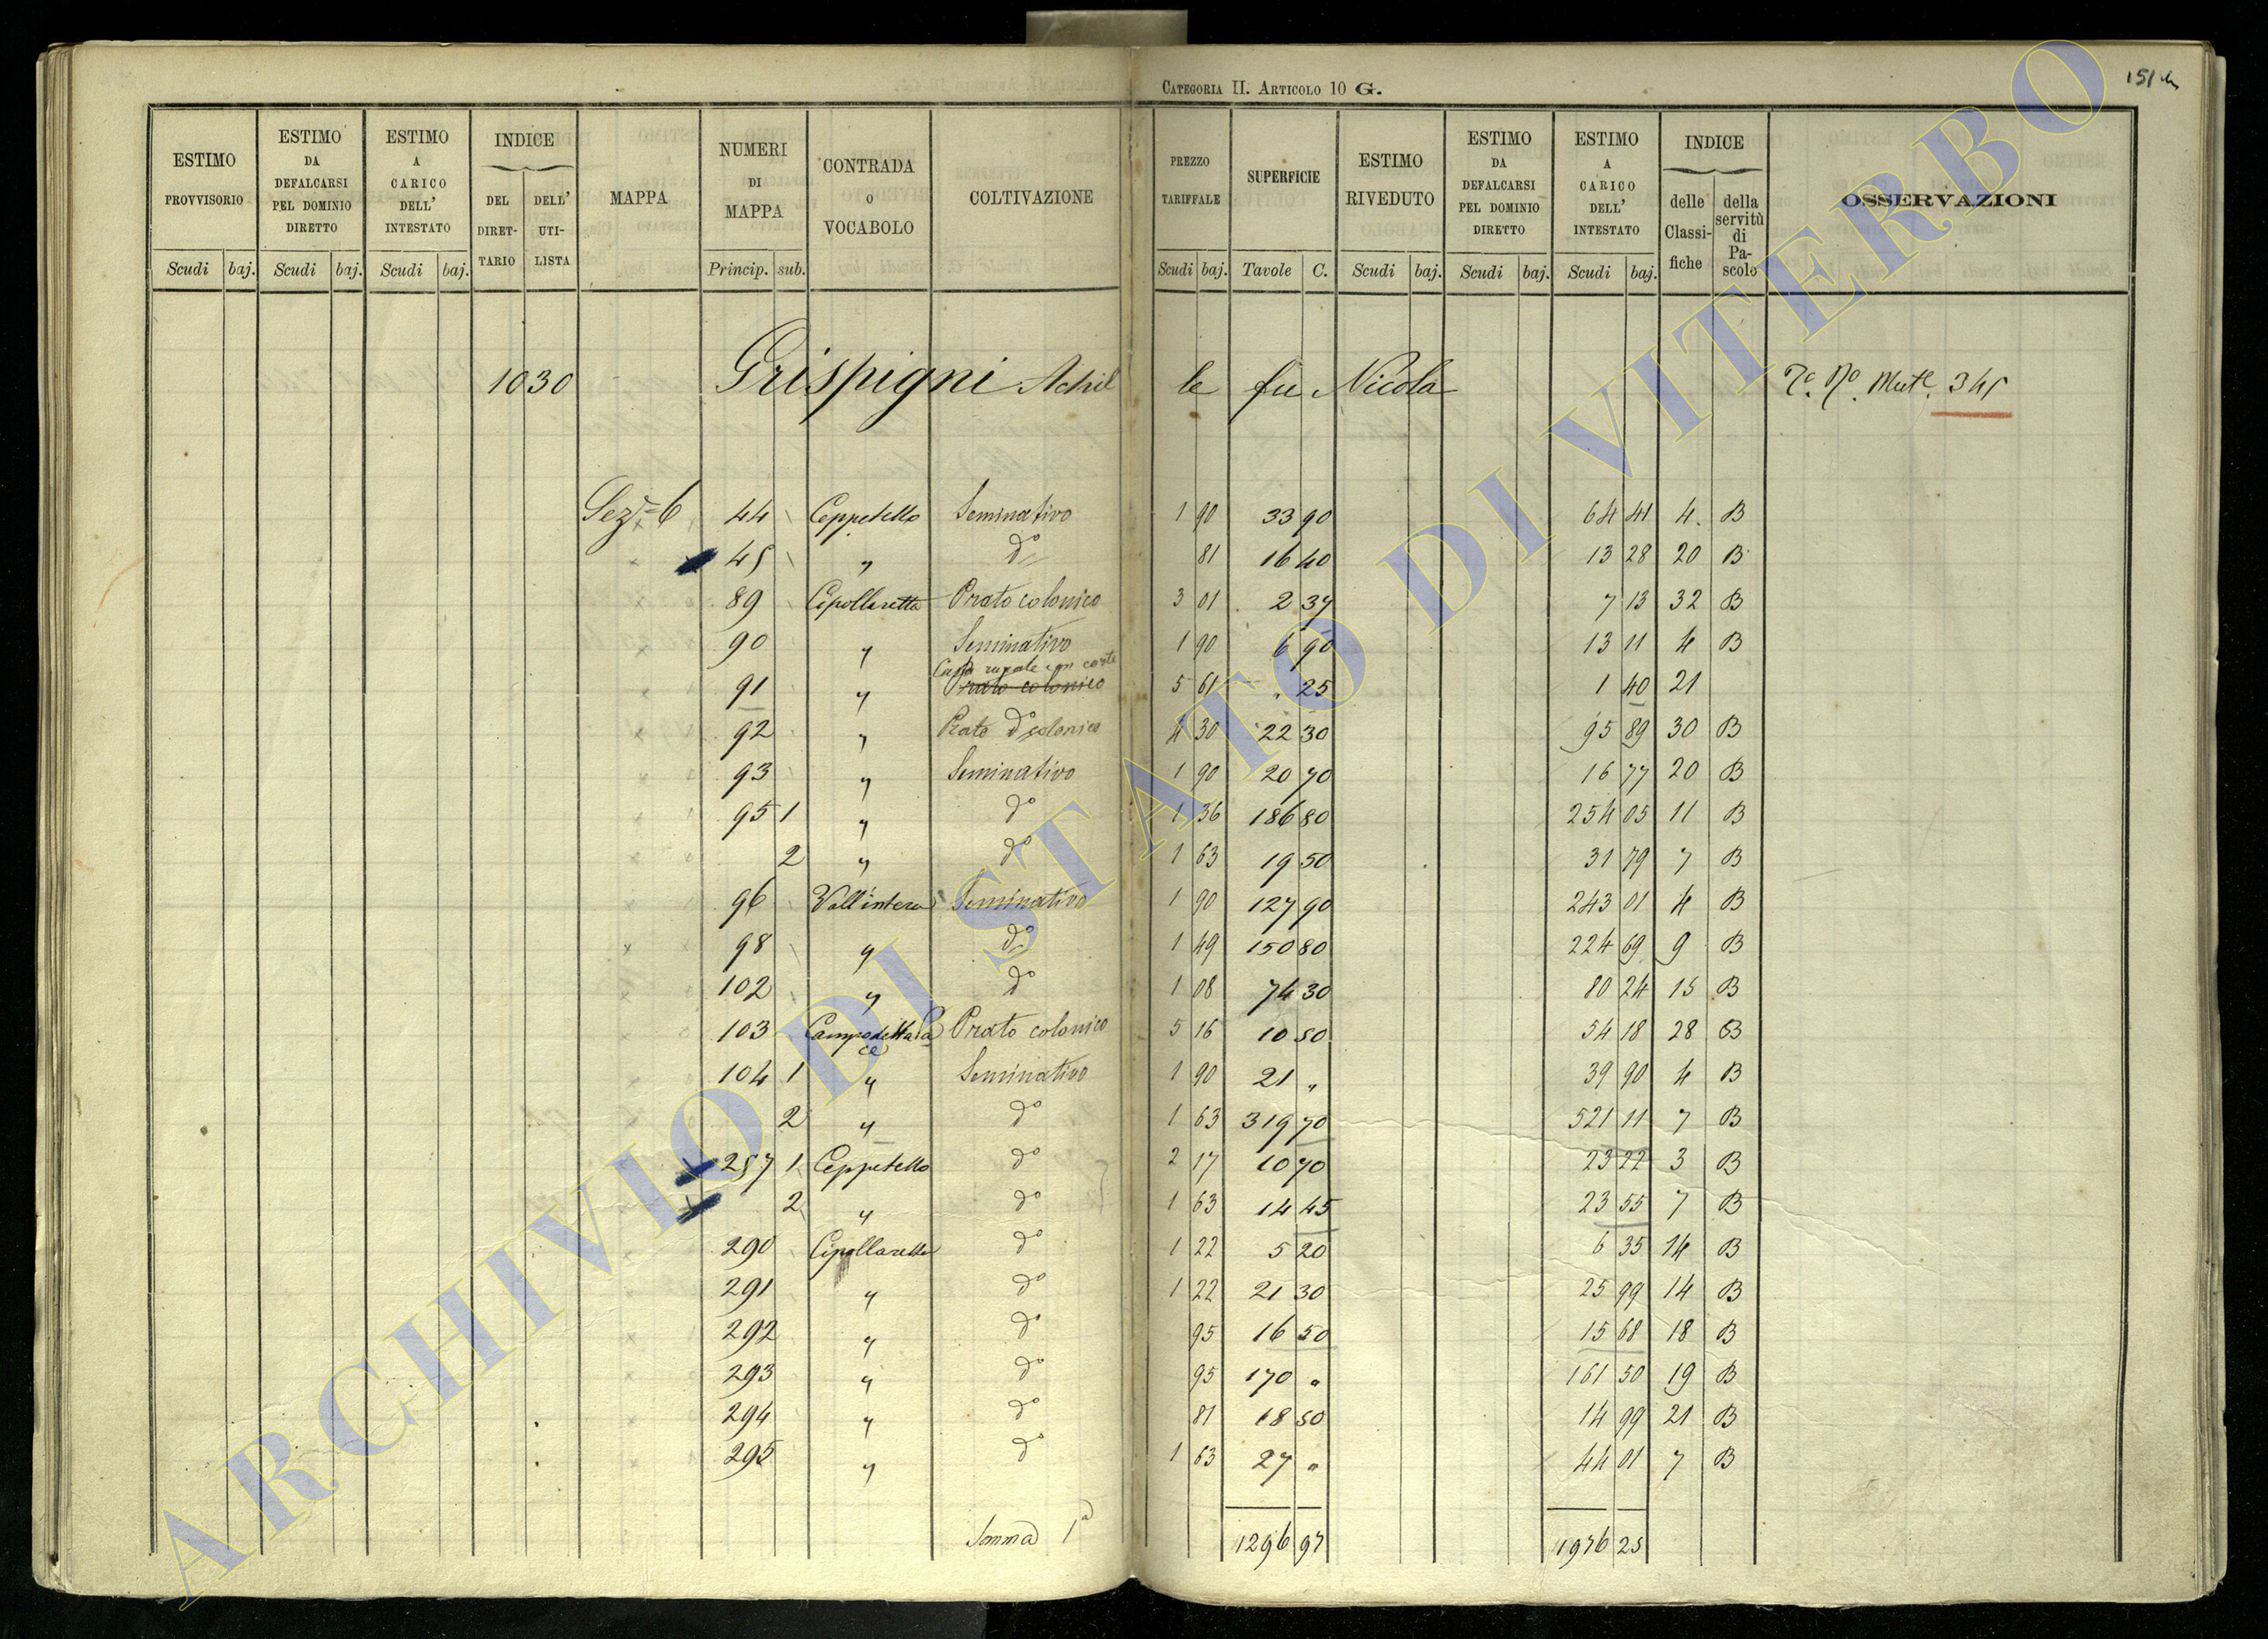 151
CATEGORIA II. ARTICOLO 10 G.
ESTIMO PROVVISORIO Scudi baj.
ESTIMO DA DEFALCARSI PEL DOMINIO DIRETTO Scudi baj.
ESTIMO A CARICO DELL' INTESTATO Scudi baj.
INDICE DEL DIRET-TARIO DELL' UTI-LISTA
MAPPA
NUMERI DI MAPPA Princip. sub.
CONTRADA O VOCABOLO
COLTIVAZIONE
PREZZO TARIFFALE Scudi baj.
SUPERFICIE Tavole C.
ESTIMO RIVEDUTO Scudi baj.
ESTIMO DA DEFALCARSI PEL DOMINIO DIRETTO Scudi baj.
ESTIMO A CARICO DELL' INTESTATO Scudi baj.
INDICE delle Classi-fiche della servitù di Pa-scolo
OSSERVAZIONI
1030 Grispigni Achille fu Nicola 345
Sez. 6 44 Ceppetello Seminativo 1 90 33 90 64 41 4. B
45 " do 81 16 40 13 28 20 B
89 Cipollaretta Prato colonico 3 01 2 37 7 13 32 B
90 " Seminativo 1 90 6 90 13 11 4 B
Casa rurale con corte
91 " Prato colonico 5 61 " 25 1 40 21
92 " Prato do colonico 4 30 22 30 95 89 30 B
93 " Seminativo 1 90 20 70 16 77 20 B
95 1 " do 1 36 186 80 254 05 11 B
2 " do 1 63 19 50 31 79 7 B
96 Vall'intera Seminativo 1 90 127 90 243 01 4 B
98 " do 1 49 150 80 224 69 9 B
102 " do 1 08 74 30 80 24 15 B
103 Campo della Pace Prato colonico 5 16 10 50 54 18 28 B
104 1 " Seminativo 1 90 21 " 39 90 4 B
2 " do 1 63 319 70 521 11 7 B
257 1 Ceppetello do 2 17 10 70 23 22 3 B
2 " do 1 63 14 45 23 55 7 B
290 Cipollaretta do 1 22 5 20 6 35 14 B
291 " do 1 22 21 30 25 99 14 B
292 " do 95 16 50 15 68 18 B
293 " do 95 170 " 161 50 19 B
294 " do 81 18 50 14 99 21 B
295 " do 1 63 27 " 44 01 7 B
Somma 1a 1296 97 1976 25
ARCHIVIO DI STATO DI VITERBO